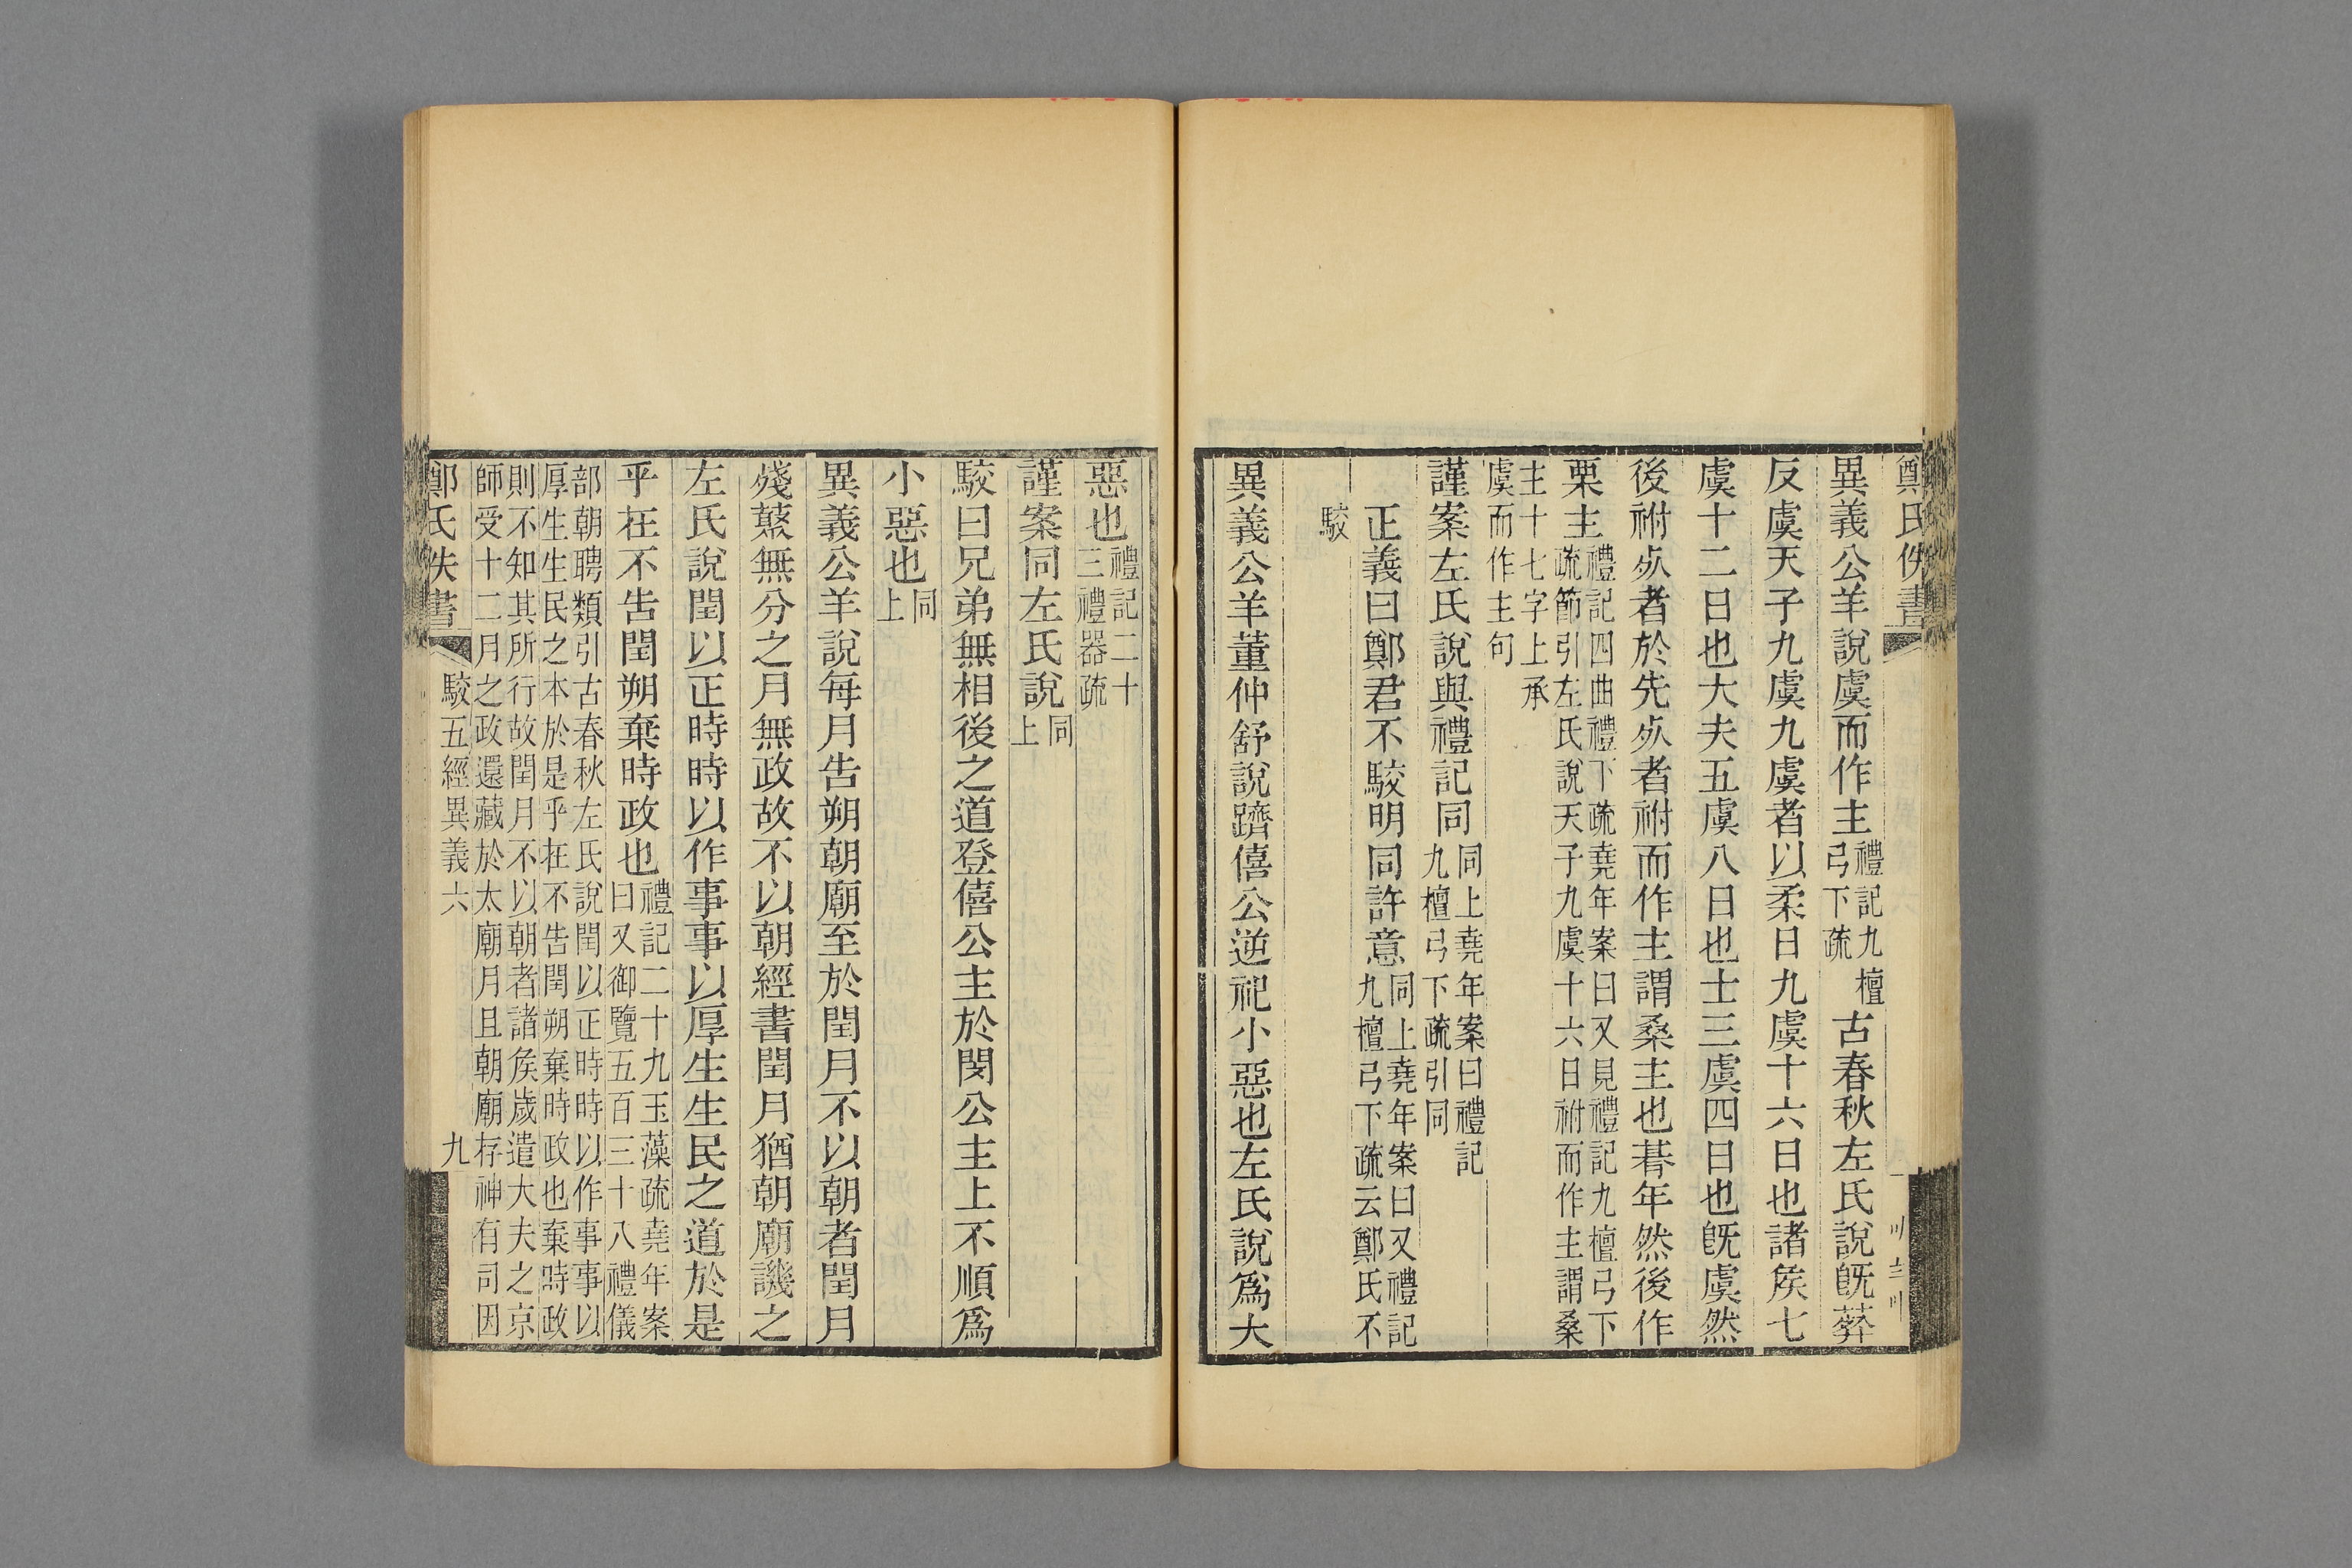 鄭氏佚書
異義公羊說虞而作主禮記九檀弓下疏古春秋左氏說旣葬
反虞天子九虞九虞者以柔日九虞十六日也諸矦七
虞十二日也大夫五虞八日也士三虞四日也旣虞然
後祔𣦸者於先𣦸者祔而作主謂桑主也朞年然後作
栗主禮記四曲禮下疏堯年案曰又見禮記九檀弓下疏節引左氏說天子九虞十六日祔而作主謂桑
主十七字上承虞而作主句
謹案左氏說與禮記同同上堯年案曰禮記九檀弓下疏引同
正義曰鄭君不駮明同許意同上堯年案曰又禮記九檀弓下疏云鄭氏不
駮
異義公羊董仲舒說躋僖公逆祀小惡也左氏說爲大
惡也禮記二十三禮器疏
謹案同左氏說同上
駮曰兄弟無相後之道登僖公主於閔公主上不順爲
小惡也同上
異義公羊說每月告朔朝廟至於閏月不以朝者閏月
殘蒸無分之月無政故不以朝經書閏月猶朝廟譏之
左氏說閏以正時時以作事事以厚生生民之道於是
乎在不告閏朔棄時政也禮記二十九玉藻疏堯年案曰又御覽五百三十八禮儀
部朝聘類引古春秋左氏說閏以正時時以作事事以厚生生民之本於是乎在不告閏朔棄時政也棄時政
則不知其所行故閏月不以朝者諸矦歲遣大夫之京師受十二月之政還藏於太廟月旦朝廟存神有司因
鄭氏佚書 駮五經異義六 九